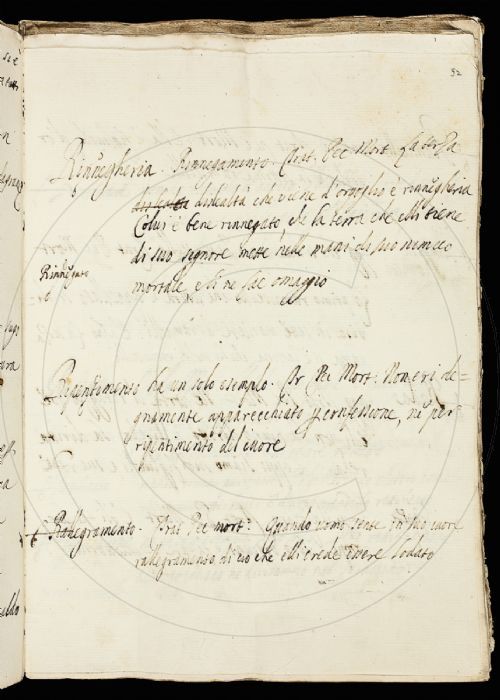 52
Rinnegheria. Rinnegamento. Trat. Pec Mort. La terza
dislealtà che viene d'orgoglio è rinnegheria
Colui è bene rinnegato, che la terra che elli tiene
di suo signore mette nelle mani di suo nemico
Rinnegato
mortale elli ne fae omaggio
Ripentimento ha un solo esemplo. Tr Pec Mort: Non eri de=
gnamente apparecchiato p confessione, ne per
ripentimento del cuore
Rallegramento. Trat Pec mort: Quando uomo sente in suo cuore
rallegramento di ciò che elli crede essere lodato